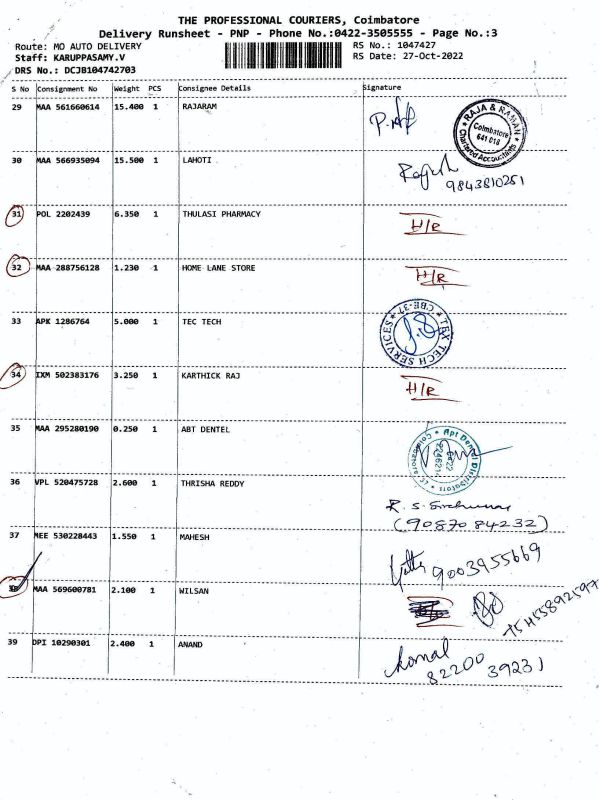 THE PROFESSIONAL COURIERS, Coimbatore
Delivery Runsheet - PNP - Phone No.:0422-3505555 - Page No.:3
Route: MO AUTO DELIVERY RS No.: 1047427
Staff: KARUPPASAMY.V RS Date: 27-Oct-2022
DRS No.: DCJB104742703
S No Consignment No Weight PCS Consignee Details Signature
29 MAA 561660614 15.400 1 RAJARAM
RAJA & RAMAN
Coimbatore
641 018
Chartered Accountants
30 MAA 566935094 15.500 1 LAHOTI
Rajesh
9843810251
31 POL 2202439 6.350 1 THULASI PHARMACY H/R
32 MAA 288756128 1.230 1 HOME LANE STORE H/R
33 APK 1286764 5.000 1 TEC TECH
TEX TECH SERVICES
CBE-37
34 IXM 502383176 3.250 1 KARTHICK RAJ H/R
35 MAA 295280190 0.250 1 ABT DENTEL
Apt Dental Distributors
36 VPL 520475728 2.600 1 THRISHA REDDY
R. S.
(9087084232)
37 MEE 530228443 1.550 1 MAHESH
9003955669
38 MAA 569600781 2.100 1 WILSAN
39 DPI 10290301 2.400 1 ANAND
Komal
82200
39231